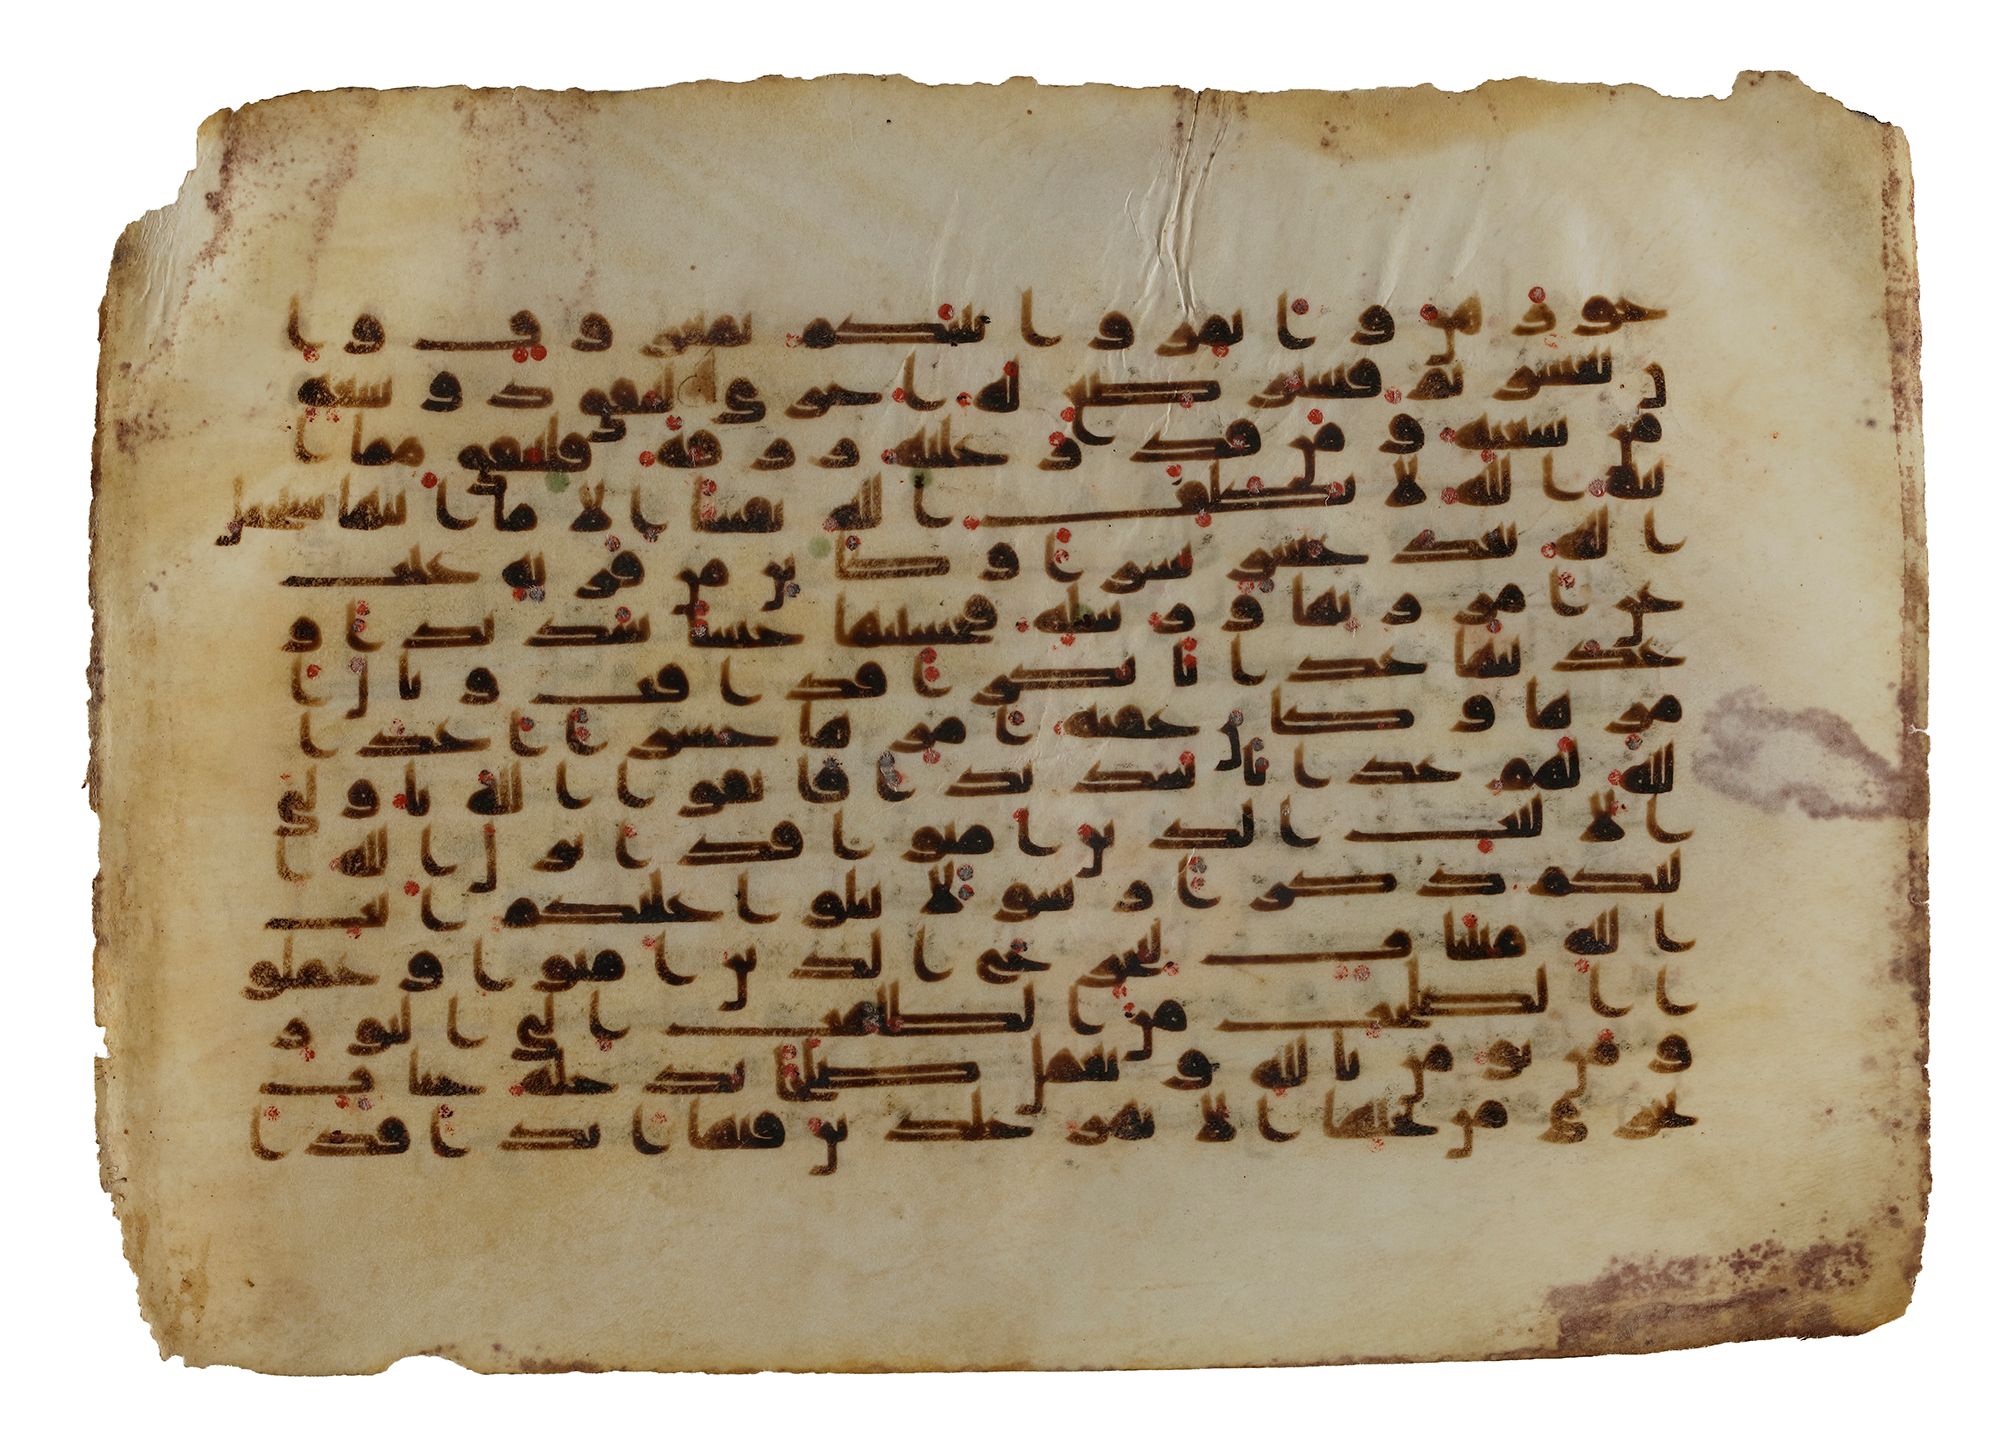 جورهن واتمروا بينكم بمعروف وا
ن تعسرتم فسترضع له اخرى لينفق ذو سعة
من سعته ومن قدر عليه رزقه فلينفق مما ا
تيه الله لا يكلف الله نفسا الا ما اتيها سيجعل
الله بعد عسر يسرا وكاين من قرية عتت
عن امر ربها ورسله فحسبنها حسبا شديدا و
عذبنها عذابا نكرا فذاقت وبال ا
مرها وكان عقبة امرها خسرا اعد ا
لله لهم عذابا شديدا فاتقوا الله ياولي
الالبب الذين امنوا قد انزل الله ا
ليكم ذكرا رسولا يتلوا عليكم ايت
الله مبينت ليخرج الذين امنوا وعملو
ا الصلحت من الظلمت الى النور
ومن يومن بالله ويعمل صلحا يدخله جنت
تجري من تحتها الانهر خلدين فيها ابدا قد ا